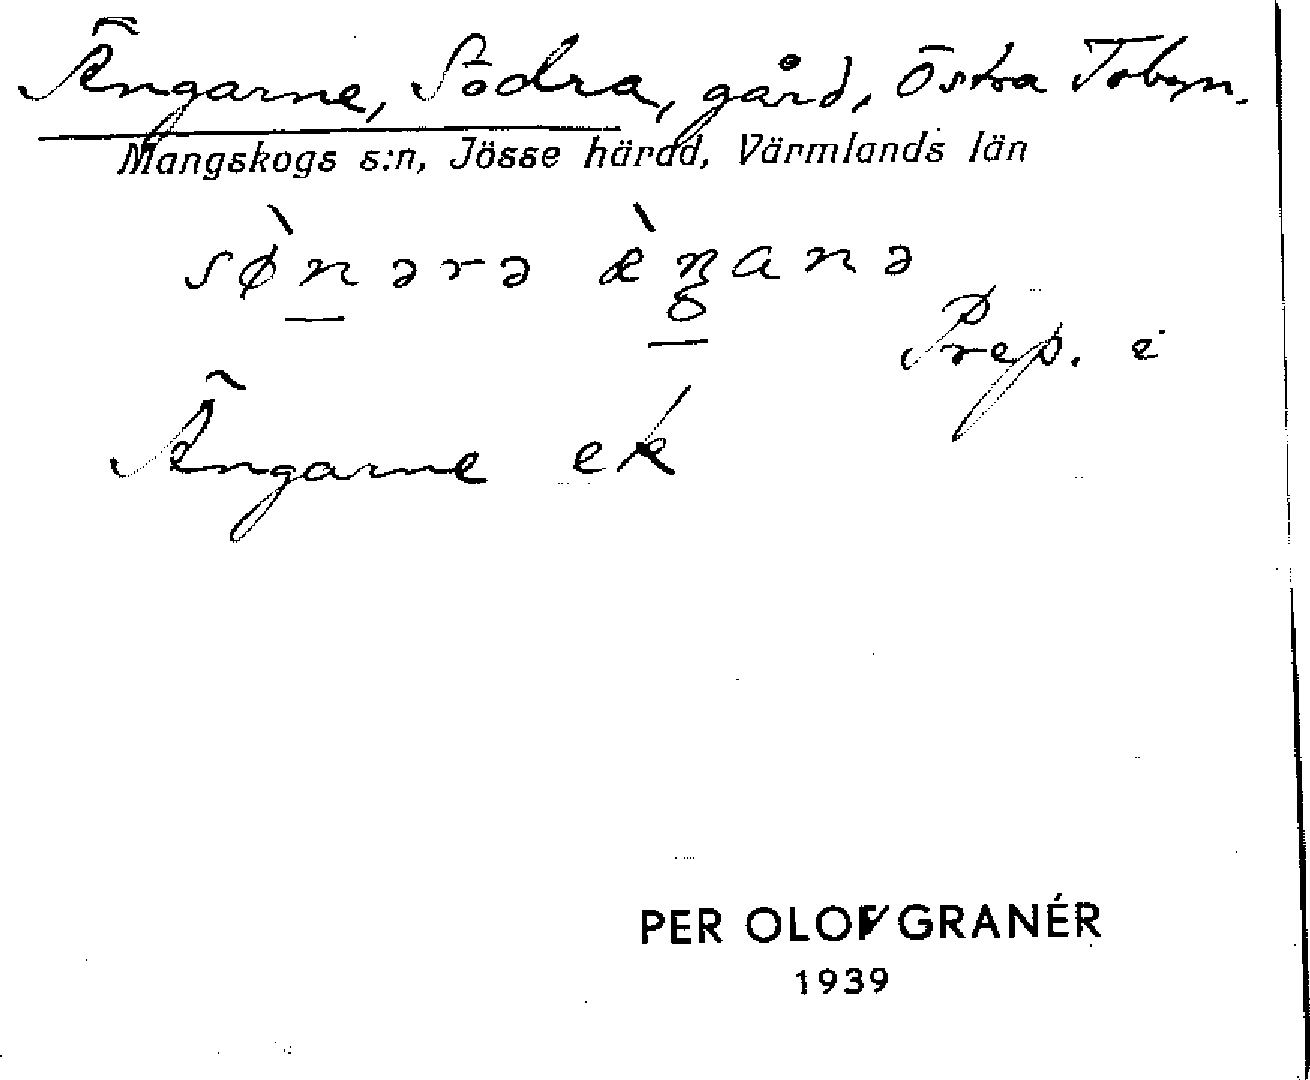 Ängarne, Södra, gård, Östra Tobyn.
Mangskogs s:n, Jösse härad, Värmlands län
sø̀nərə æ̀ŋanə
Prep. i
Ängarne ek
PER OLOF GRANÉR
1939